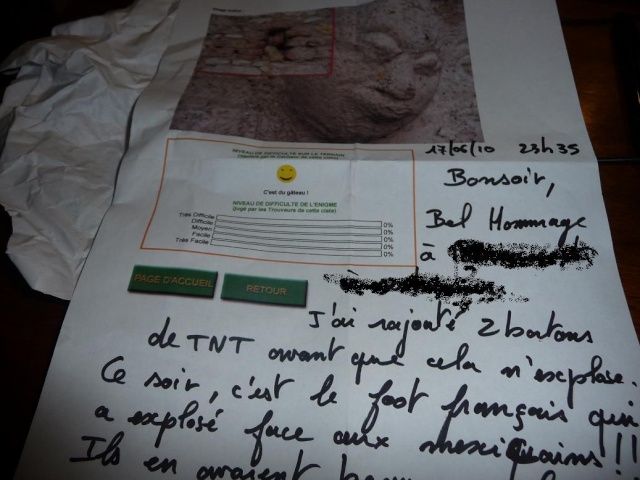 17/06/10 23h35
NIVEAU DE DIFFICULTE SUR LE TERRAIN
C'est du gâteau !
NIVEAU DE DIFFICULTE DE L'ENIGME
(jugé par les Trouveurs de cette ciste)
Très Difficile 0%
Difficile 0%
Moyen 0%
Facile 0%
Très Facile 0%
PAGE D'ACCUEIL RETOUR
Bonsoir,
Bel Hommage
à
à
J'ai rajouté 2 batons
de TNT avant que cela n'explose.
Ce soir, c'est le foot français qui
a explosé face aux mexiquains !!
Ils en avaient